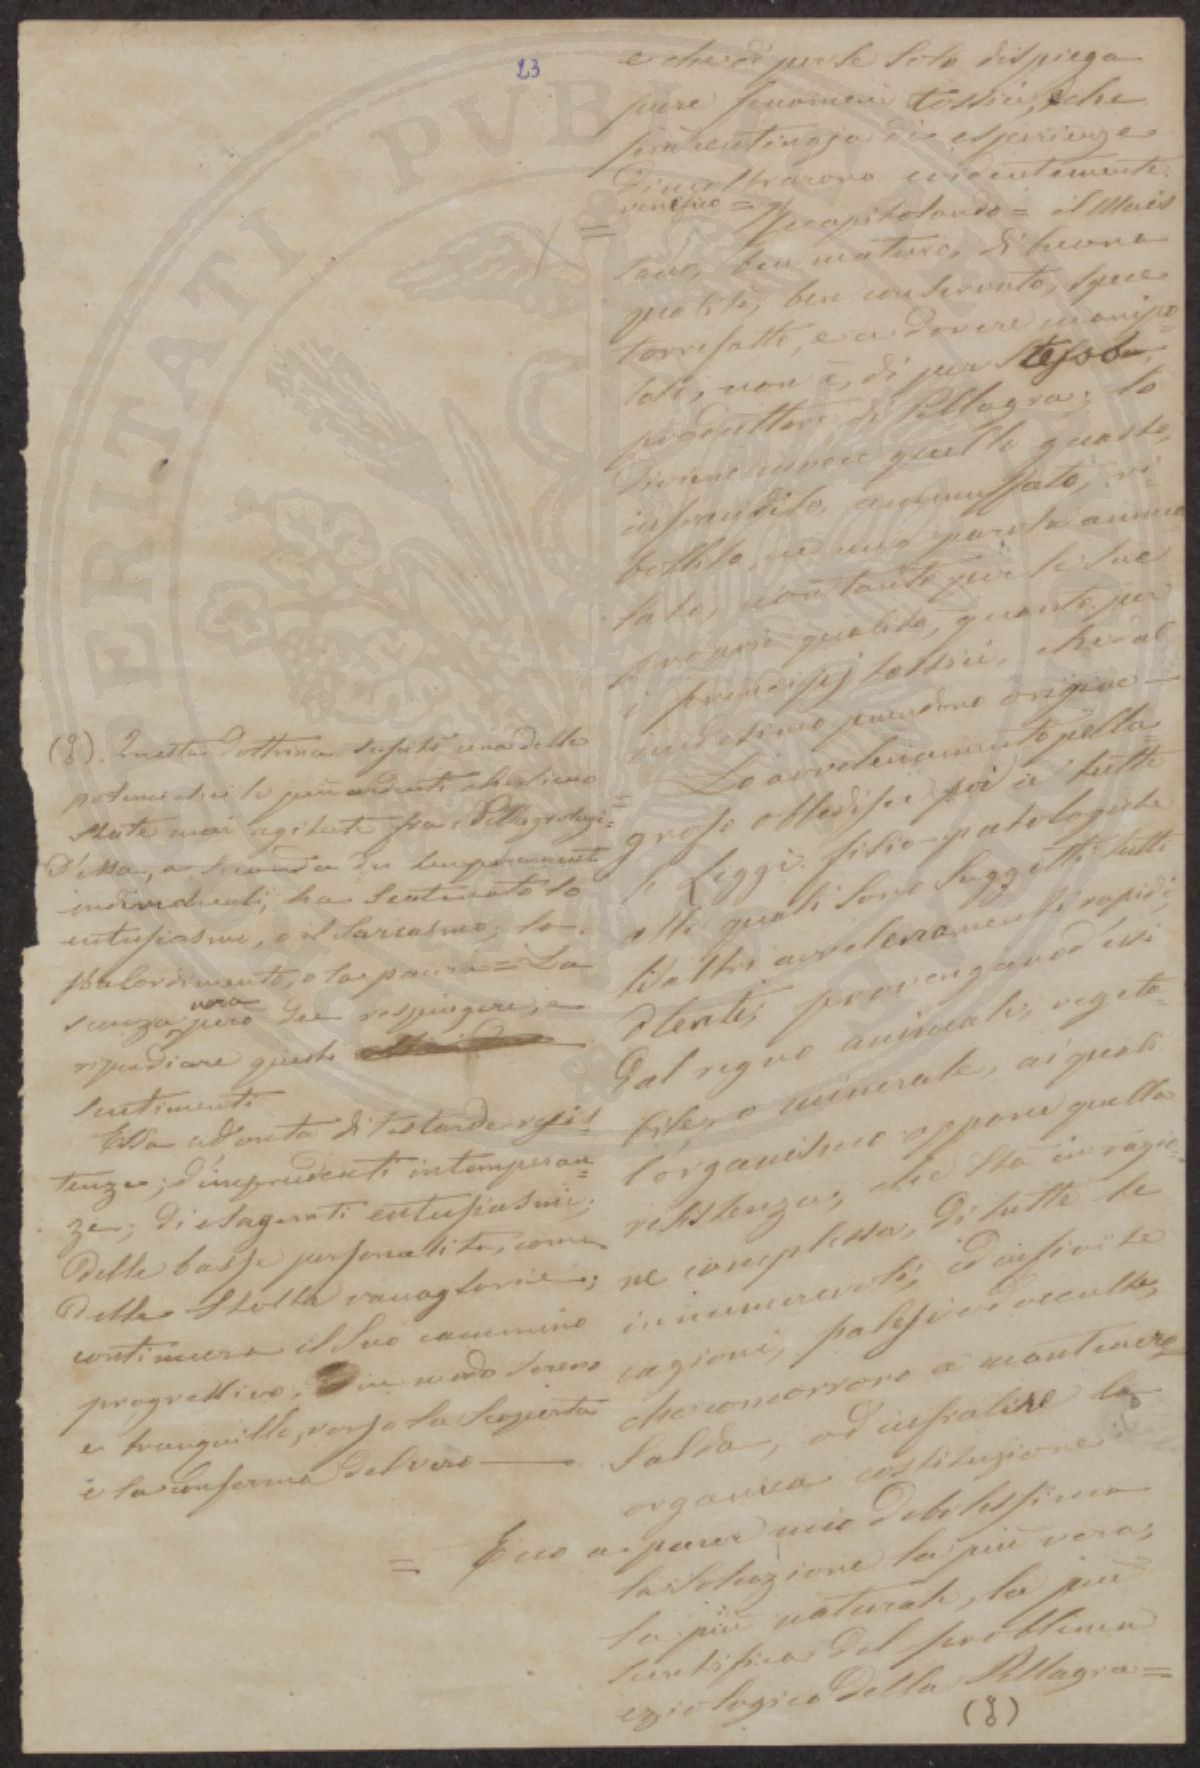 23
e che di per se solo dispiega
pure fenomeni tossici, e che
più centinaja di esperienze
dimostrarono evidentemente
venefico =
= Recapitolando = il Mais
sano, ben maturo, di buona
qualità, ben conservato,
torrefatto, e a dovere manipo=
lato, non è, di per se
produttore di Pellagra; lo
diviene invece quello guasto,
infracidito, ammuffato, ri=
bollito, in una parola amma=
lato, non tanto per le sue
proprie qualità, quanto per
i principj tossici, che dal
medesimo prendono origine —
= Lo avvelenamento pella=
groso obbedisce poi a tutte
le Leggi fisio-patologiche
alle quali sono soggetti tutti
li altri avvelenamenti rapidi,
o lenti, provengano essi
dal regno animale, vegeta=
bile, o minerale, ai quali
l'organismo oppone quella
resistenza, che sta in ragio=
ne complessa, di tutte le
innumerevoli, ed infinite
cagioni, palesi od occulte,
che concorrono a mantenere
salda, od infralire la
organica costituzione
= Ecco a parer mio debolissimo
la soluzione la più vera,
la più naturale, la più
scientifica del problema
eziologico della Pellagra =
(8)
(8). Questa dottrina suscitò una delle
polemiche le più ardenti che siano
state mai agitate fra i Pellagrologi =
D'essa, a seconda dei temperamenti
individuali, ha scatenato lo
entusiasmo, o il sarcasmo; lo
sbalordimento, o la paura = La
vera
scienza però dee respingere, e
ripudiare questi
sentimenti
Essa ad onta di testarde resis=
tenze; d'imprudenti intemperan=
ze; di esagerati entusiasmi;
delle basse personalità, come
delle stolte vanaglorie;
continuerà il suo cammino
progressivo, in modo sereno
e tranquillo, verso la scoperta
e la conferma del vero —